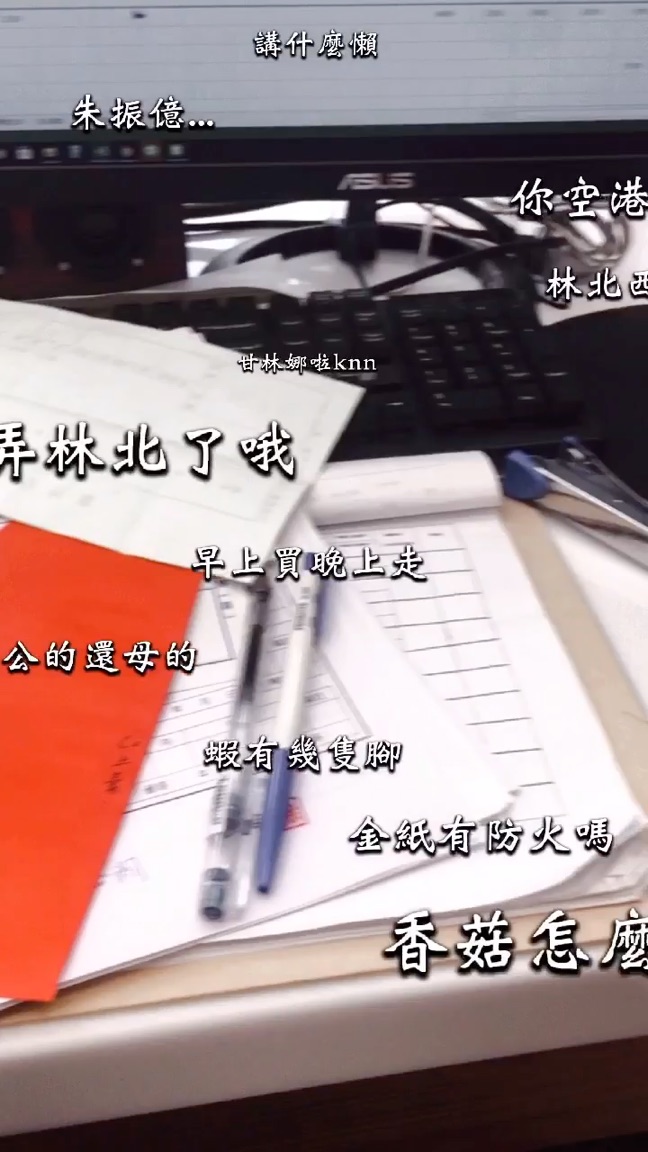 講什麼懶
朱振億...
ASUS
你空港
林北西
甘林娜啦knn
弄林北了哦
早上買晚上走
公的還母的
蝦有幾隻腳
金紙有防火嗎
香菇怎麼